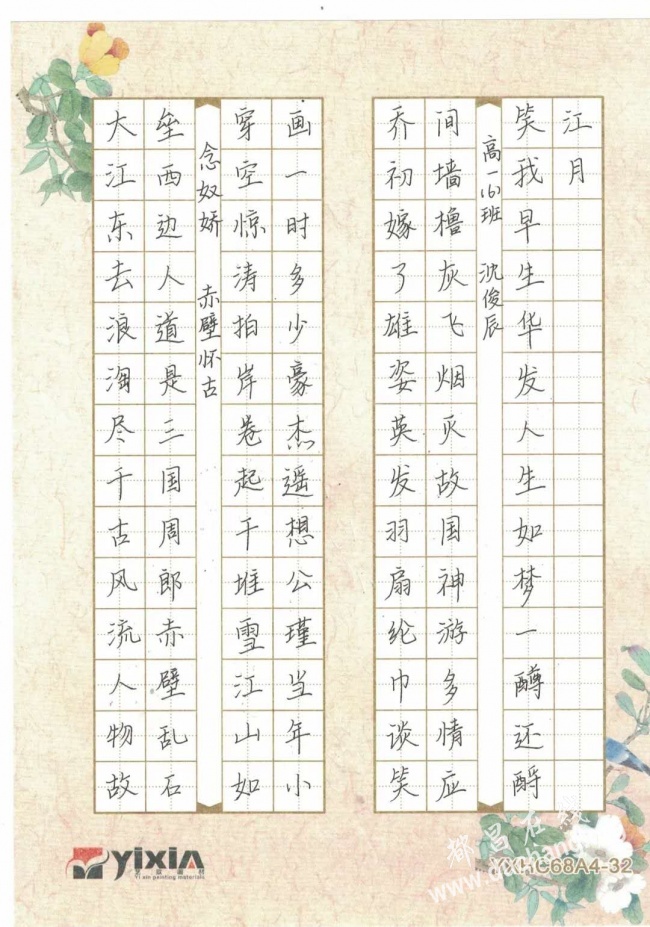 大江东去浪淘尽千古风流人物故
垒西边人道是三国周郎赤壁乱石
念奴娇 赤壁怀古
穿空惊涛拍岸卷起千堆雪江山如
画一时多少豪杰遥想公瑾当年小
乔初嫁了雄姿英发羽扇纶巾谈笑
间墙橹灰飞烟灭故国神游多情应
高一(6)班 沈俊辰
笑我早生华发人生如梦一还酹
江月
yixin
Yi xin painting materials
YXHC68A4-32
都昌在线